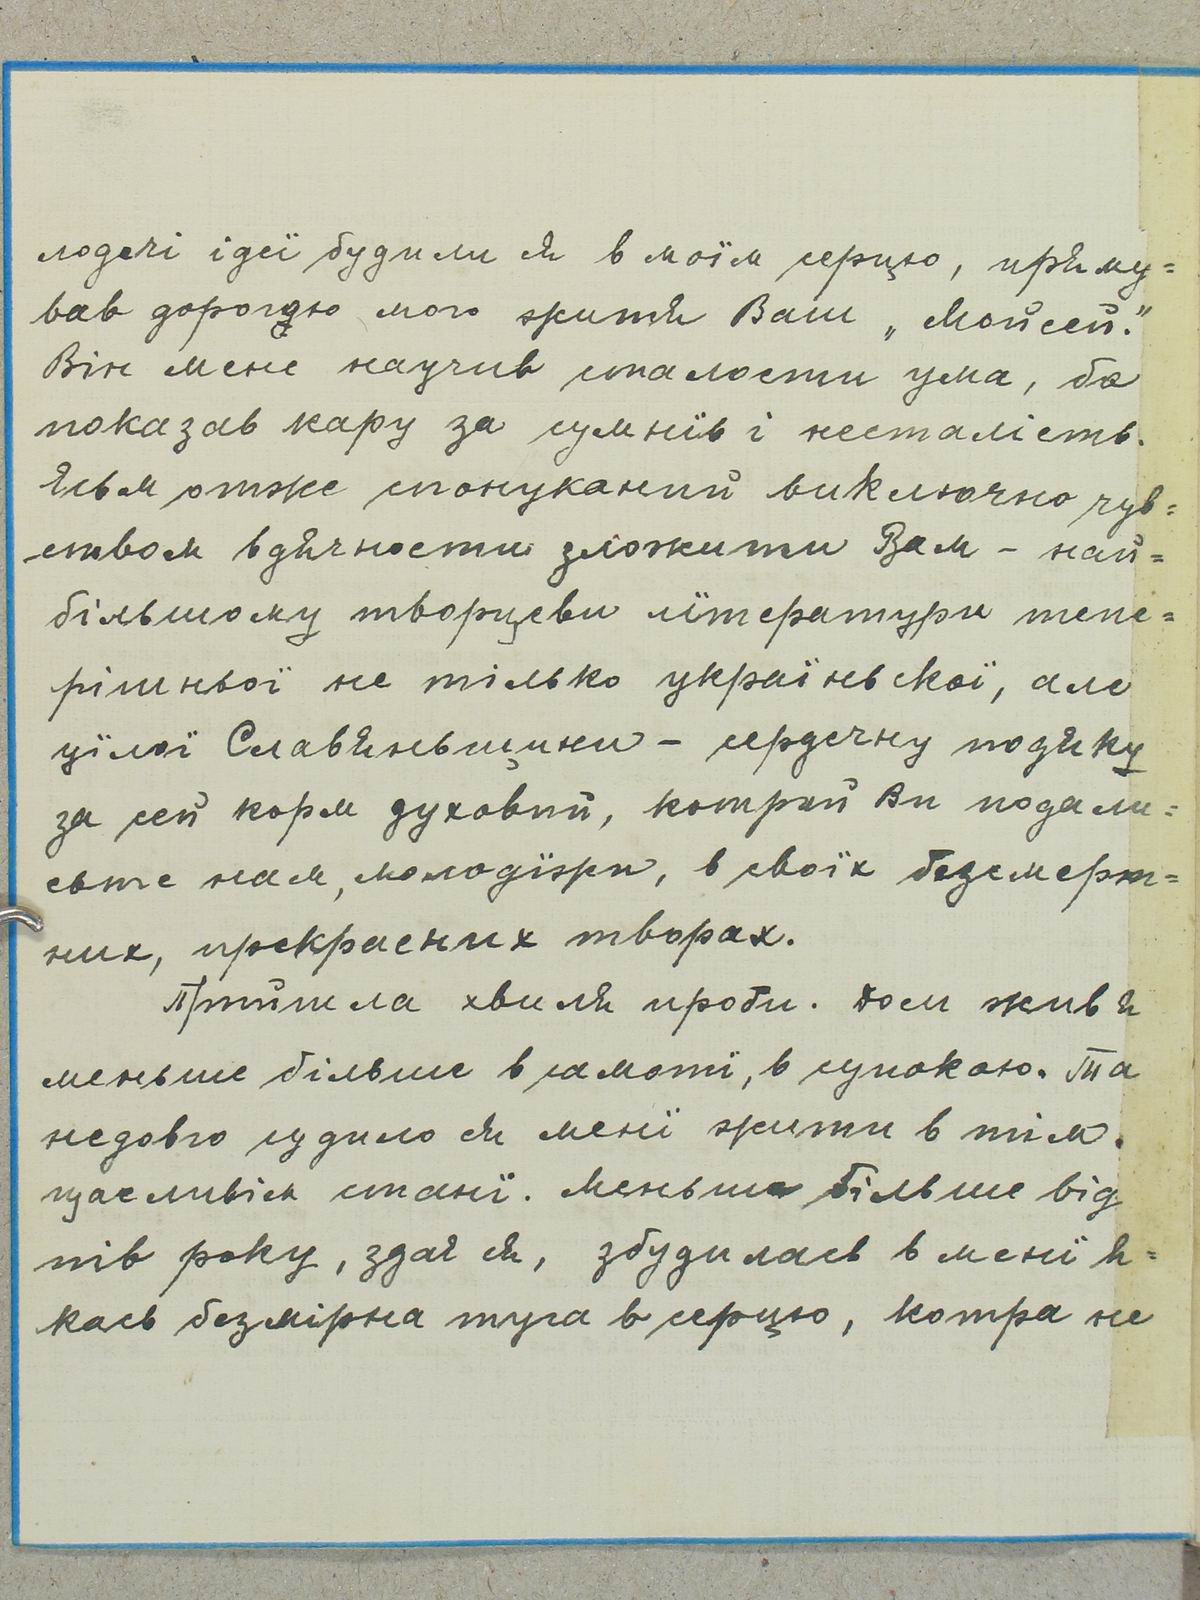 лодечі ідеї будили ся в моїм серцю, пряму=
вав дорогою мого житя Ваш „Мойсей."
Він мене научив сталости ума, бо
показав кару за сумнїв і несталість.
Ясьм отже спонуканий виключно чув=
ством вдячности зложити Вам – най=
більшому творцеви лїтератури тепе=
рішньої не тілько україньскої, але
цїлої Славяньщини – сердечну подяку
за сей корм духовий, котрий Ви подали=
сьте нам, молодїжи, в своїх безсмерт=
них, прекрасних творах.
Прийшла хвиля проби. Доси жив я
меньше більше в самотї, в супокою. Та
недовго судило ся менї жити в тім
щасливім станї. Меньше більше від
пів року, здає ся, збудилась в менї я=
кась безмірна туга в серцю, котра не